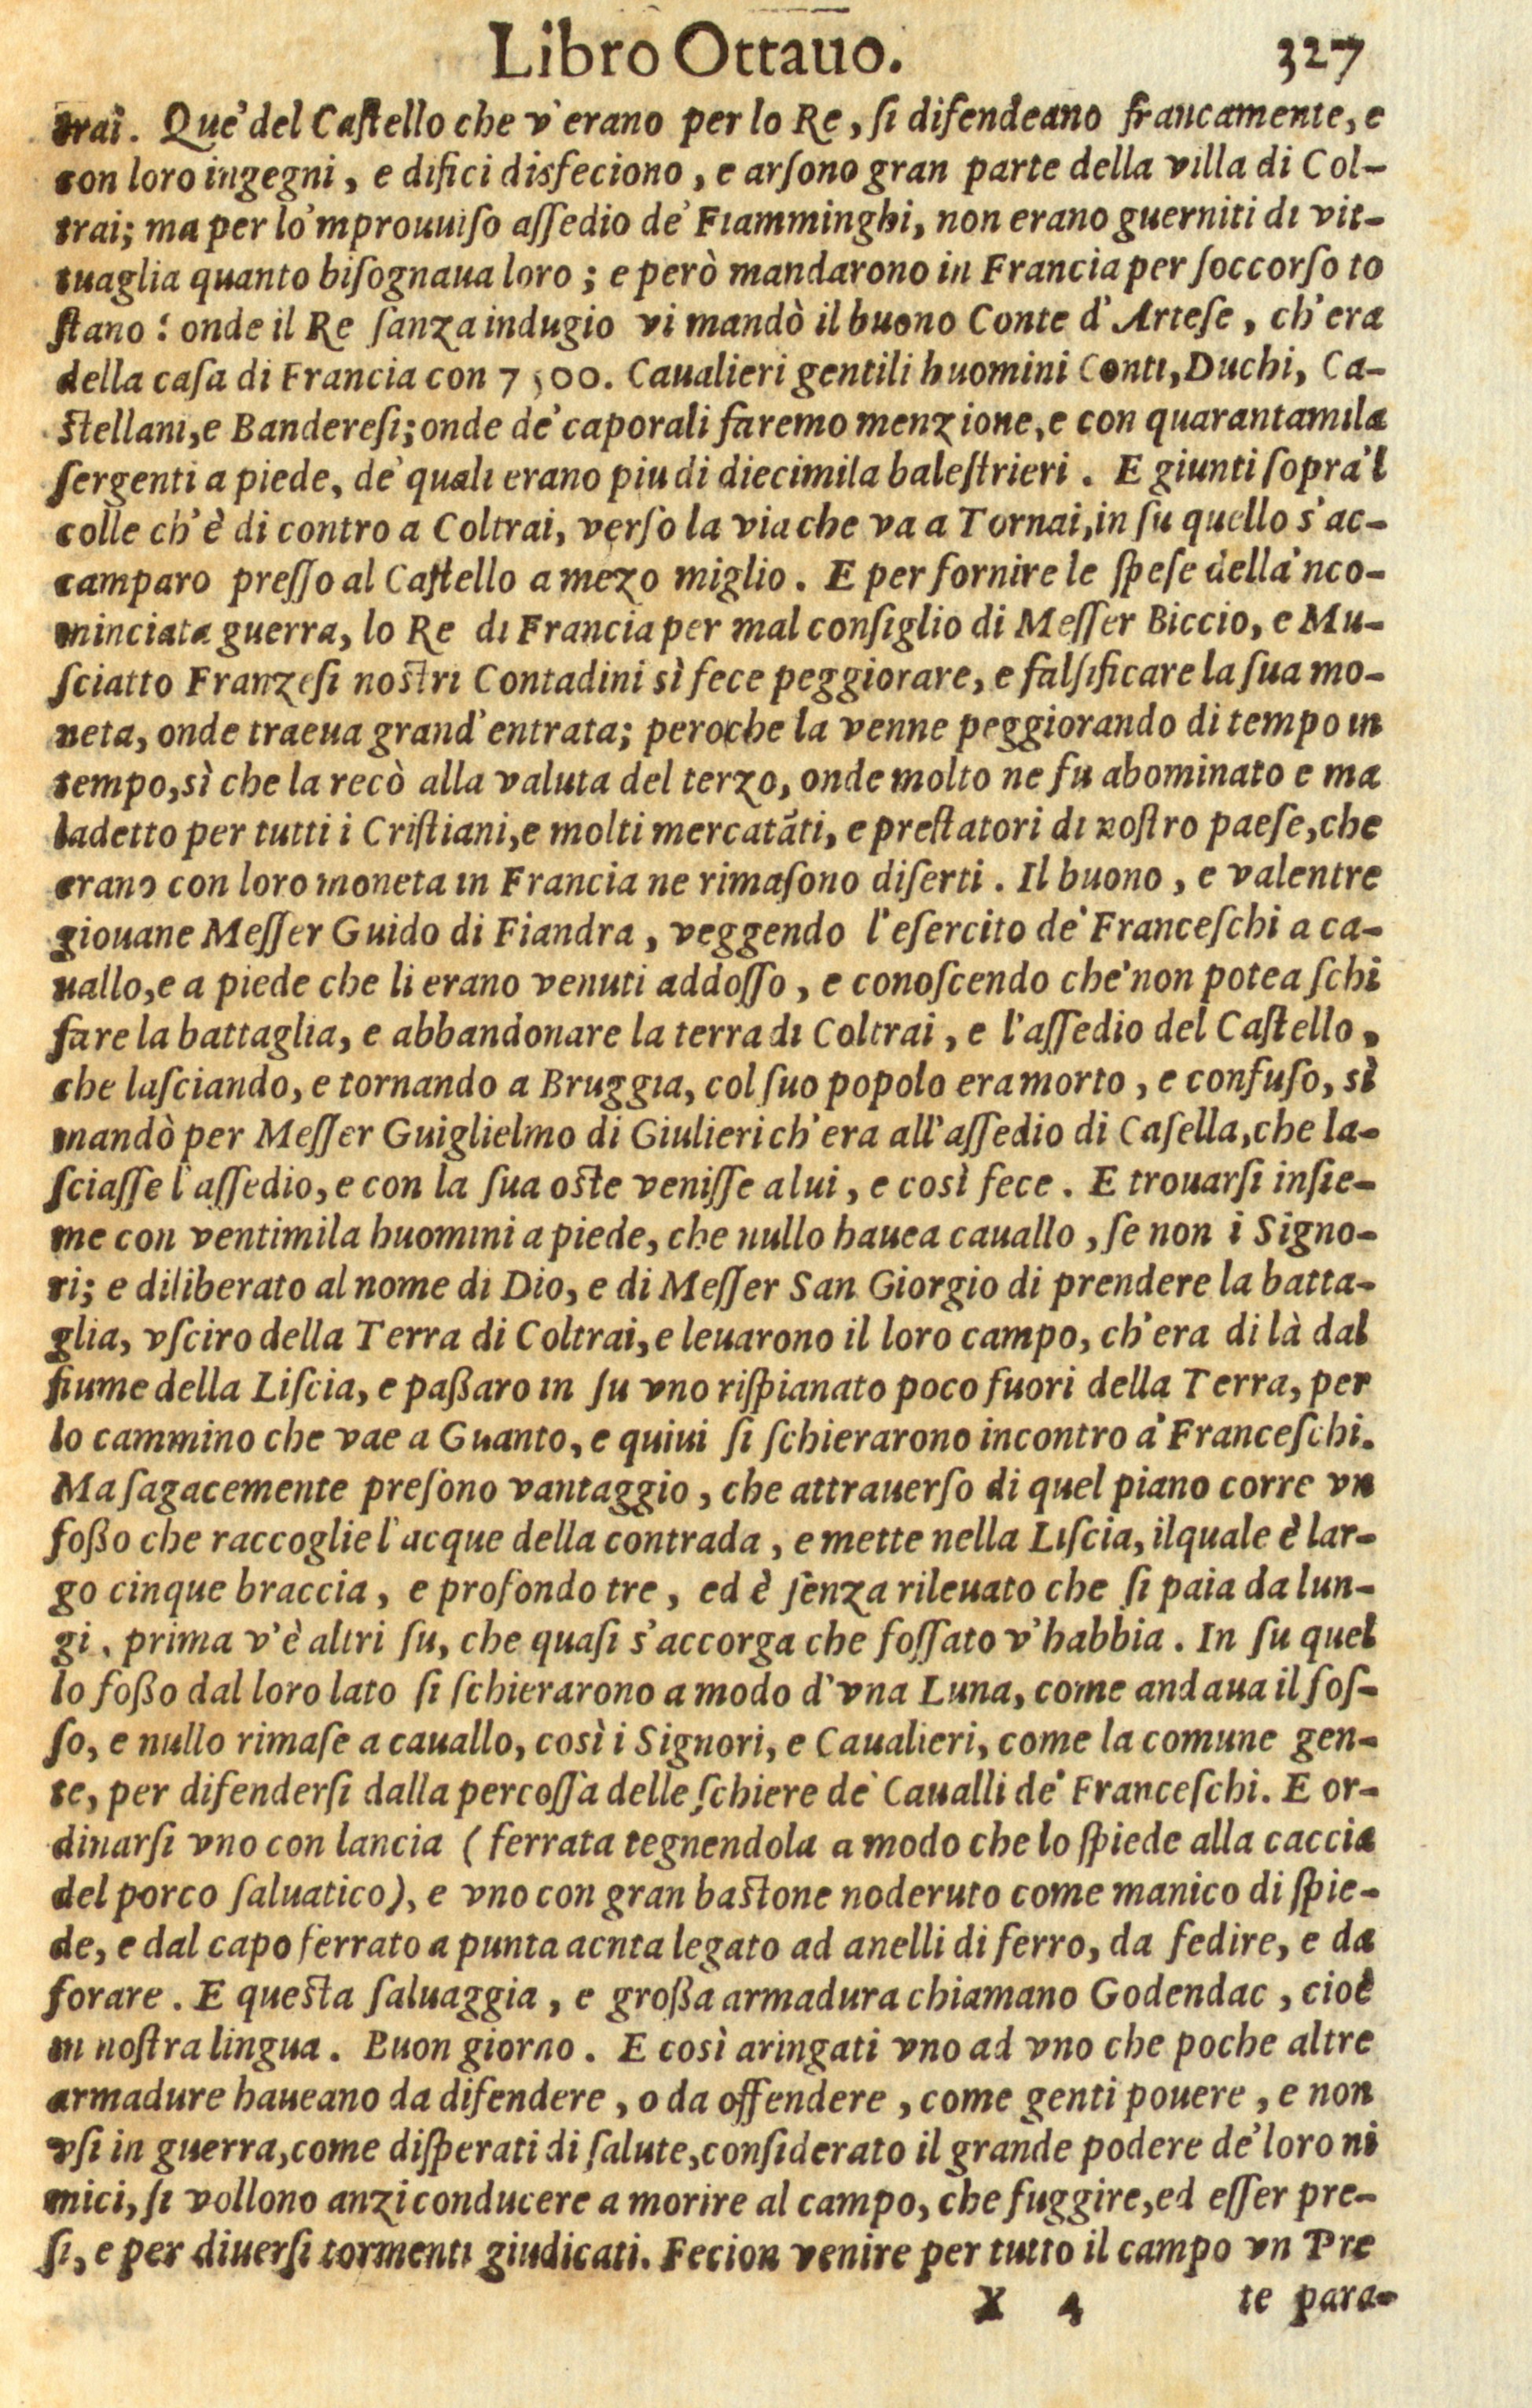 Libro Ottauo. 327
trai. Que' del Caſtello che v'erano per lo Re, ſi difendeano francamente, e
con loro ingegni, e difici disfeciono, e arſono gran parte della villa di Col-
trai; ma per lo'mprouuiſo aſſedio de' Fiamminghi, non erano guerniti di vit-
tuaglia quanto biſognaua loro; e però mandarono in Francia per ſoccorſo to
ſtano: onde il Re ſanza indugio vi mandò il buono Conte d'Arteſe, ch'era
della caſa di Francia con 7500. Caualieri gentili huomini Conti, Duchi, Ca-
ſtellani, e Bandereſi; onde de' caporali faremo menzione, e con quarantamila
ſergenti a piede, de' quali erano piu di diecimila baleſtrieri. E giunti ſopra'l
colle ch'è di contro a Coltrai, verſo la via che va a Tornai, in ſu quello s'ac-
camparo preſſo al Caſtello a mezo miglio. E per fornire le ſpeſe della'nco-
minciata guerra, lo Re di Francia per mal conſiglio di Meſſer Biccio, e Mu-
ſciatto Franzeſi noſtri Contadini sì fece peggiorare, e falſificare la ſua mo-
neta, onde traeua grand'entrata; peroche la venne peggiorando di tempo in
tempo, sì che la recò alla valuta del terzo, onde molto ne fu abominato e ma
ladetto per tutti i Criſtiani, e molti mercatāti, e preſtatori di noſtro paeſe, che
erano con loro moneta in Francia ne rimaſono diſerti. Il buono, e valentre
giouane Meſſer Guido di Fiandra, veggendo l'eſercito de' Franceſchi a ca-
uallo, e a piede che li erano venuti addoſſo, e conoſcendo che'non potea ſchi
fare la battaglia, e abbandonare la terra di Coltrai, e l'aſſedio del Caſtello,
che laſciando, e tornando a Bruggia, col ſuo popolo era morto, e confuſo, sì
mandò per Meſſer Guiglielmo di Giulieri ch'era all'aſſedio di Caſella, che la-
ſciaſſe l'aſſedio, e con la ſua oſte veniſſe a lui, e così fece. E trouarſi inſie-
me con ventimila huomini a piede, che nullo hauea cauallo, ſe non i Signo-
ri; e diliberato al nome di Dio, e di Meſſer San Giorgio di prendere la batta-
glia, vſciro della Terra di Coltrai, e leuarono il loro campo, ch'era di là dal
fiume della Liſcia, e paßaro in ſu vno riſpianato poco fuori della Terra, per
lo cammino che vae a Guanto, e quiui ſi ſchierarono incontro a' Franceſchi.
Ma ſagacemente preſono vantaggio, che attrauerſo di quel piano corre vn
foßo che raccoglie l'acque della contrada, e mette nella Liſcia, ilquale è lar-
go cinque braccia, e profondo tre, ed è ſenza rileuato che ſi paia da lun-
gi, prima v'è altri ſu, che quaſi s'accorga che foſſato v'habbia. In ſu quel
lo foßo dal loro lato ſi ſchierarono a modo d'vna Luna, come andaua il foſ-
ſo, e nullo rimaſe a cauallo, così i Signori, e Caualieri, come la comune gen-
te, per difenderſi dalla percoſſa delle ſchiere de' Caualli de' Franceſchi. E or-
dinarſi vno con lancia (ferrata tegnendola a modo che lo ſpiede alla caccia
del porco ſaluatico), e vno con gran baſtone noderuto come manico di ſpie-
de, e dal capo ferrato a punta acnta legato ad anelli di ferro, da fedire, e da
forare. E queſta ſaluaggia, e großa armadura chiamano Godendac, cioè
in noſtra lingua. Buon giorno. E così aringati vno ad vno che poche altre
armadure haueano da difendere, o da offendere, come genti pouere, e non
vſi in guerra, come diſperati di ſalute, conſiderato il grande podere de' loro ni
mici, ſi vollono anzi conducere a morire al campo, che fuggire, ed eſſer pre-
ſi, e per diuerſi tormenti giudicati. Fecion venire per tutto il campo vn Pre
X 4 te para-